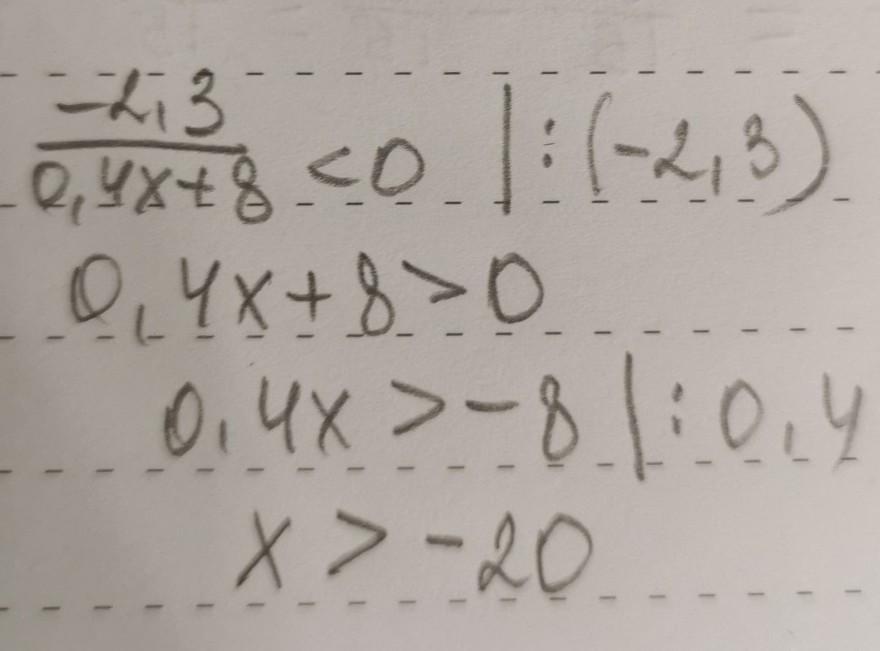 -2,3/0,4x+8 <0 | :(-2,3)
0,4x+8>0
0,4x>-8 | :0,4
x>-20